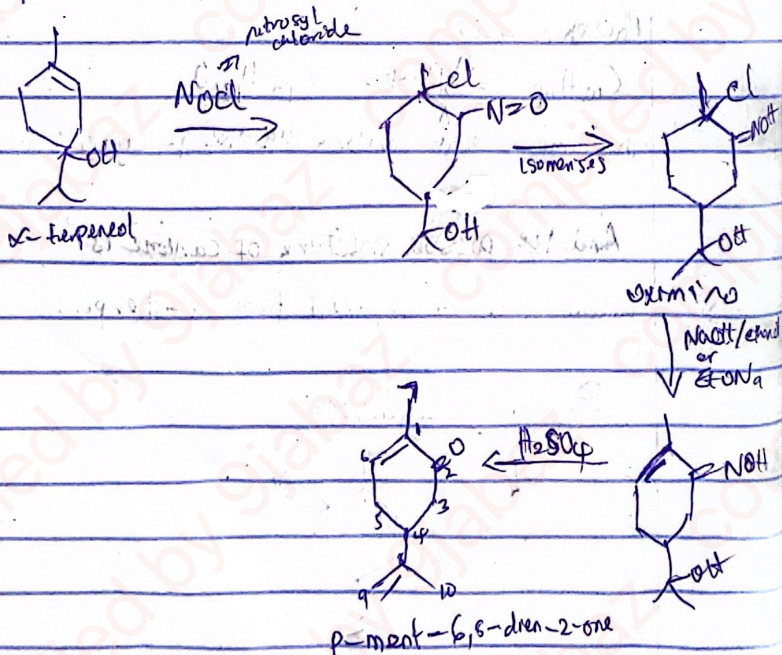 nitrosyl
chloride
NOCl
OH
α-terpeneol
Cl
N=O
OH
Isomerises
Cl
=NOH
OH
oximino
NaOH/ethanol
or
EtONa
=NOH
OH
H₂SO₄
1
O
2
3
4
5
6
9
10
p-ment-6,8-dien-2-one
compiled by 9jabaz